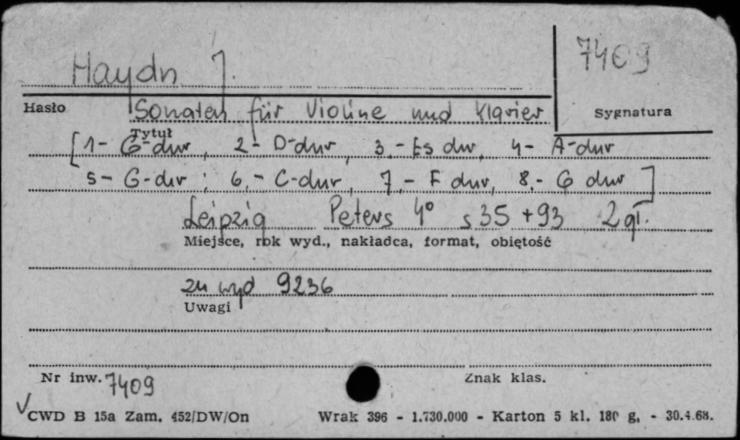 7409
Haydn J.
Hasło
Sonaten für Violine und Klavier
Sygnatura
Tytuł
[1- G-dur, 2- D-dur, 3.- Es dur, 4- A-dur
5- G-dur; 6.- C-dur, 7.- F dur, 8.- G dur]
Leipzig Peters 4° s 35 + 93 2 gł.
Miejsce, rok wyd., nakładca, format, objętość
zn wyd 9236
Uwagi
Nr inw. 7409
Znak klas.
CWD B 15a Zam. 452/DW/On Wrak 396 - 1.730.000 - Karton 5 kl. 180 g. - 30.4.68.